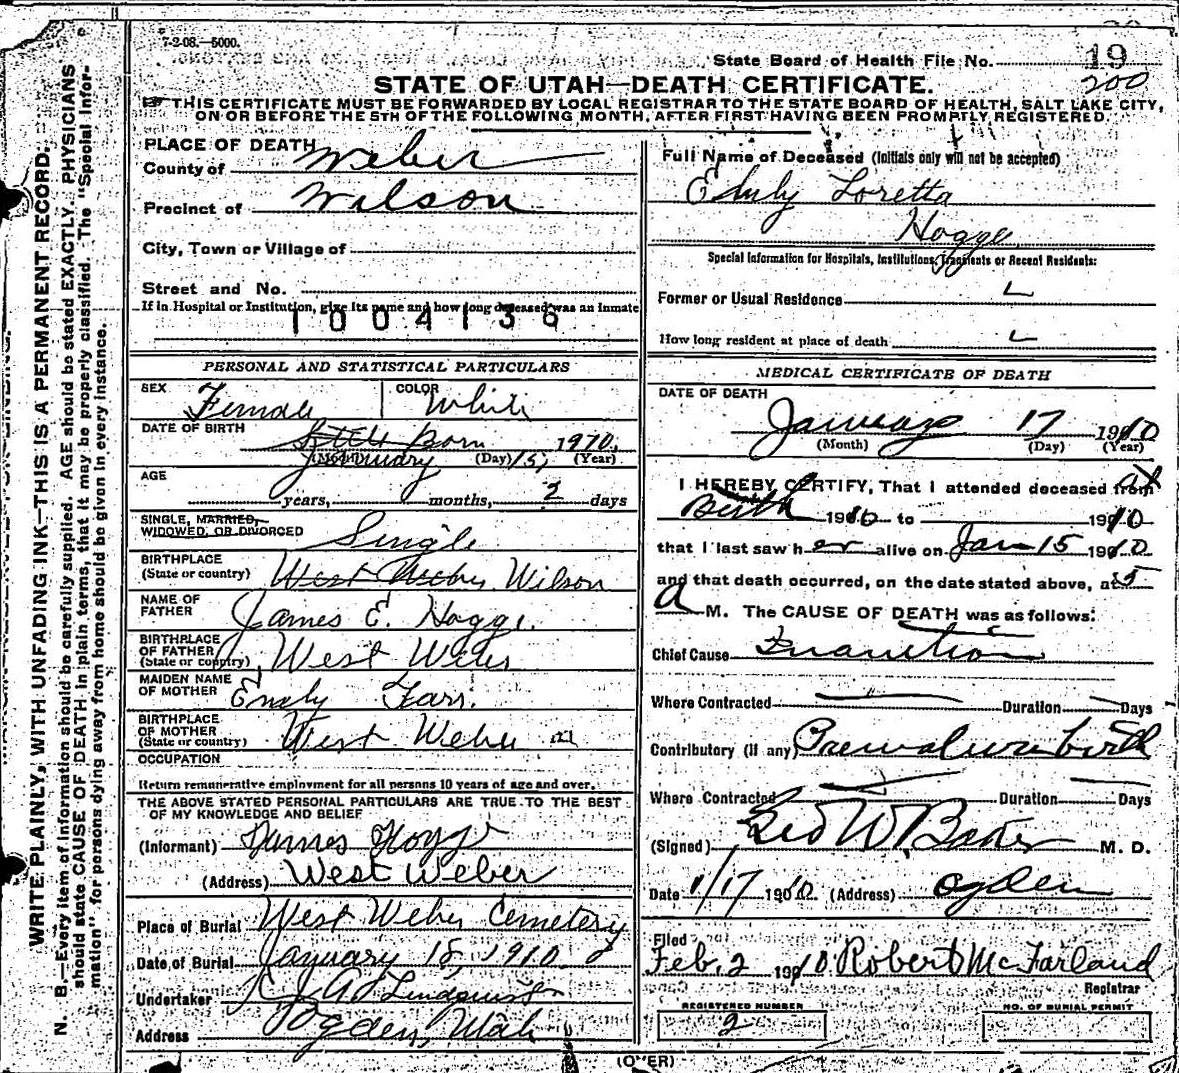 7-2-08.—5000.
State Board of Health File No. 19
200
STATE OF UTAH—DEATH CERTIFICATE.
THIS CERTIFICATE MUST BE FORWARDED BY LOCAL REGISTRAR TO THE STATE BOARD OF HEALTH, SALT LAKE CITY,
ON OR BEFORE THE 5TH OF THE FOLLOWING MONTH, AFTER FIRST HAVING BEEN PROMPTLY REGISTERED.
WRITE PLAINLY, WITH UNFADING INK—THIS IS A PERMANENT RECORD.
N. B.—Every item of information should be carefully supplied. AGE should be stated EXACTLY. PHYSICIANS
should state CAUSE OF DEATH in plain terms, that it may be properly classified. The "Special Infor-
mation" for persons dying away from home should be given in every instance.
PLACE OF DEATH
County of Weber
Precinct of Wilson
City, Town or Village of
Street and No.
If in Hospital or Institution, give its name and how long deceased was an inmate
1004136
PERSONAL AND STATISTICAL PARTICULARS
SEX Female COLOR White
DATE OF BIRTH Still Born 1910,
January 15,
(Month) (Day) (Year)
AGE
years, months, 2 days
SINGLE, MARRIED,
WIDOWED, OR DIVORCED Single
BIRTHPLACE
(State or country) West Weber Wilson
NAME OF
FATHER James E. Hogge.
BIRTHPLACE
OF FATHER
(State or country) West Weber
MAIDEN NAME
OF MOTHER Emily Farr.
BIRTHPLACE
OF MOTHER
(State or country) West Weber
OCCUPATION
Return remunerative employment for all persons 10 years of age and over.
THE ABOVE STATED PERSONAL PARTICULARS ARE TRUE TO THE BEST
OF MY KNOWLEDGE AND BELIEF
(Informant) James Hogge
(Address) West Weber
Place of Burial West Weber Cemetery
Date of Burial January 18, 1910
Undertaker Lindquist
Address Ogden, Utah
Full Name of Deceased (Initials only will not be accepted)
Emily Loretta
Hogge
Special Information for Hospitals, Institutions, Transients or Recent Residents:
Former or Usual Residence
How long resident at place of death
MEDICAL CERTIFICATE OF DEATH
DATE OF DEATH
January 17 1910
(Month) (Day) (Year)
I HEREBY CERTIFY, That I attended deceased from at
Birth 1910 to 1910
that I last saw her alive on Jan 15 1910
and that death occurred, on the date stated above, at 5
a M. The CAUSE OF DEATH was as follows:
Chief Cause Inanition
Where Contracted Duration Days
Contributory (if any) Premature birth
Where Contracted Duration Days
(Signed) Geo W. Baker M. D.
Date 1/17 1910 (Address) Ogden
Filed
Feb. 2 1910 Robert McFarland
Registrar
REGISTERED NUMBER
2
NO. OF BURIAL PERMIT
(OVER)